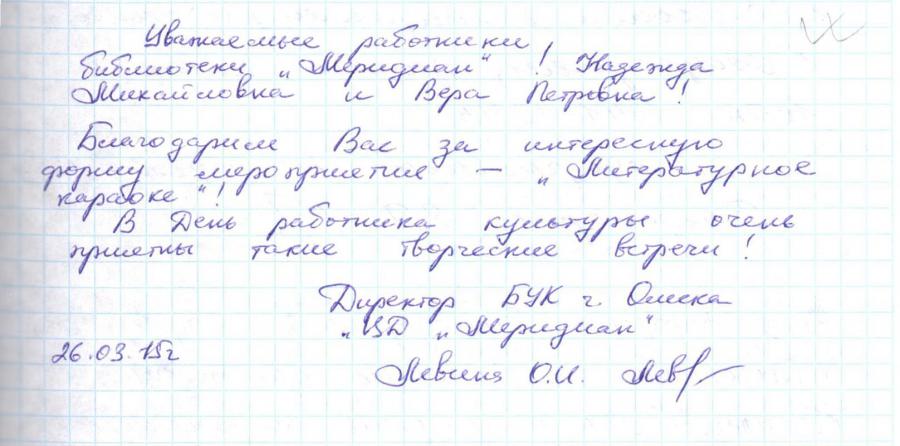 Уважаемые работники
библиотеки „Меридиан“! Надежда
Михайловна и Вера Петровна!
Благодарим Вас за интересную
форму мероприятие – „Литературное
караоке“!
В День работника культуры очень
приятны такие творческие встречи!
Директор БУК г. Омска
„ЦД „Меридиан“
26.03.15г
О.И.